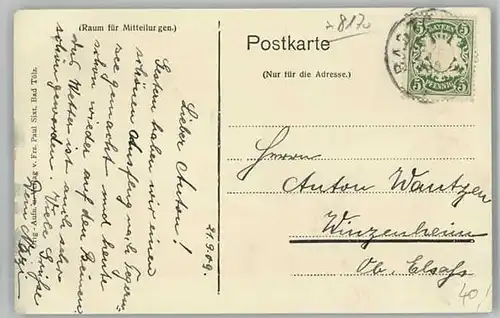 (Raum für Mitteilungen.)
Postkarte
(Nur für die Adresse.)
8170
BAD
5 BAYERN 5
5 PFENNIG 5
21.9.09.
Lieber Anton!
Gestern haben wir einen
schönen Ausflug nach Tegern-
see gemacht und heute
schon wieder auf den Beinen
das Wetter ist auch sehr
schön geworden. Viele Grüße
Dein
Verlag v. Frz. Paul Sixt, Bad Tölz.
Herrn
Anton Wantzen
Winzenheim
Ob. Elsaß
40,